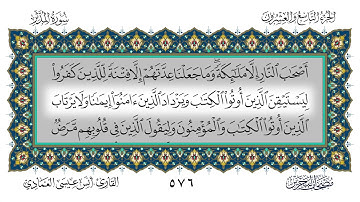 الجزء التاسع والعشرون
سورة المدثر
أَصْحَٰبَ ٱلنَّارِ إِلَّا مَلَٰٓئِكَةً ۙ وَمَا جَعَلْنَا عِدَّتَهُمْ إِلَّا فِتْنَةً لِّلَّذِينَ كَفَرُوا۟
لِيَسْتَيْقِنَ ٱلَّذِينَ أُوتُوا۟ ٱلْكِتَٰبَ وَيَزْدَادَ ٱلَّذِينَ ءَامَنُوٓا۟ إِيمَٰنًا وَلَا يَرْتَابَ
ٱلَّذِينَ أُوتُوا۟ ٱلْكِتَٰبَ وَٱلْمُؤْمِنُونَ وَلِيَقُولَ ٱلَّذِينَ فِى قُلُوبِهِم مَّرَضٌ
القارئ: أنس عيسى العمادي
٥٧٦